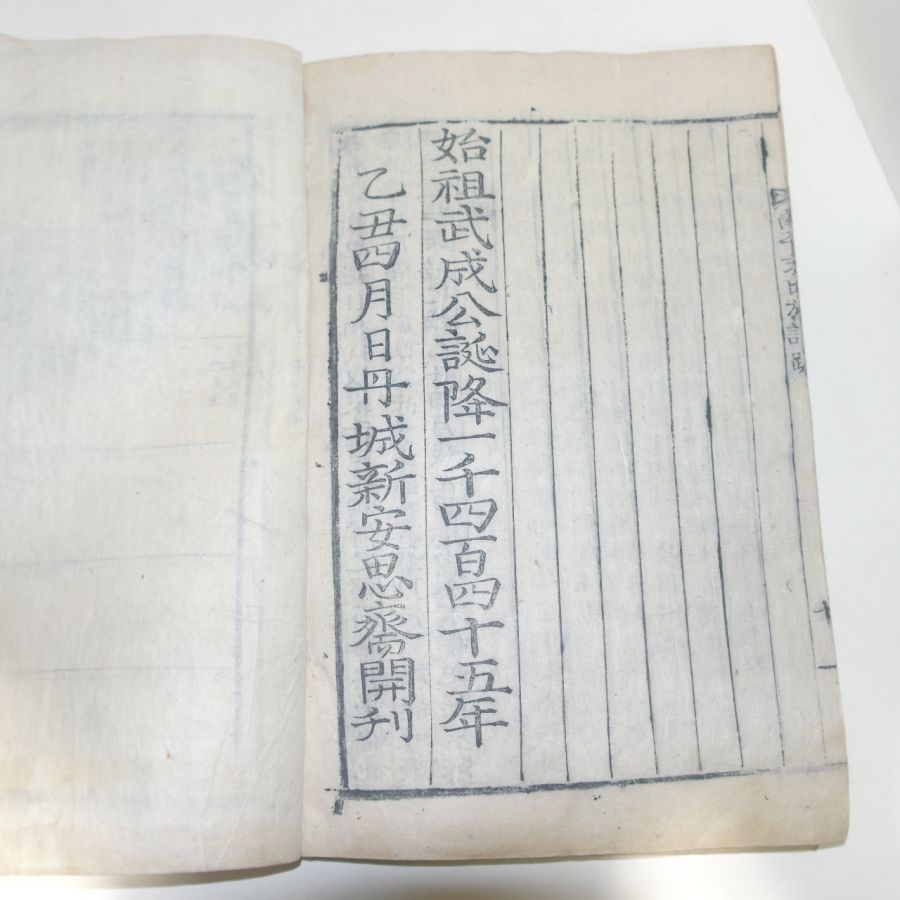 始祖武成公誕降一千四百四十五年
乙丑四月日丹城新安思齋開刊